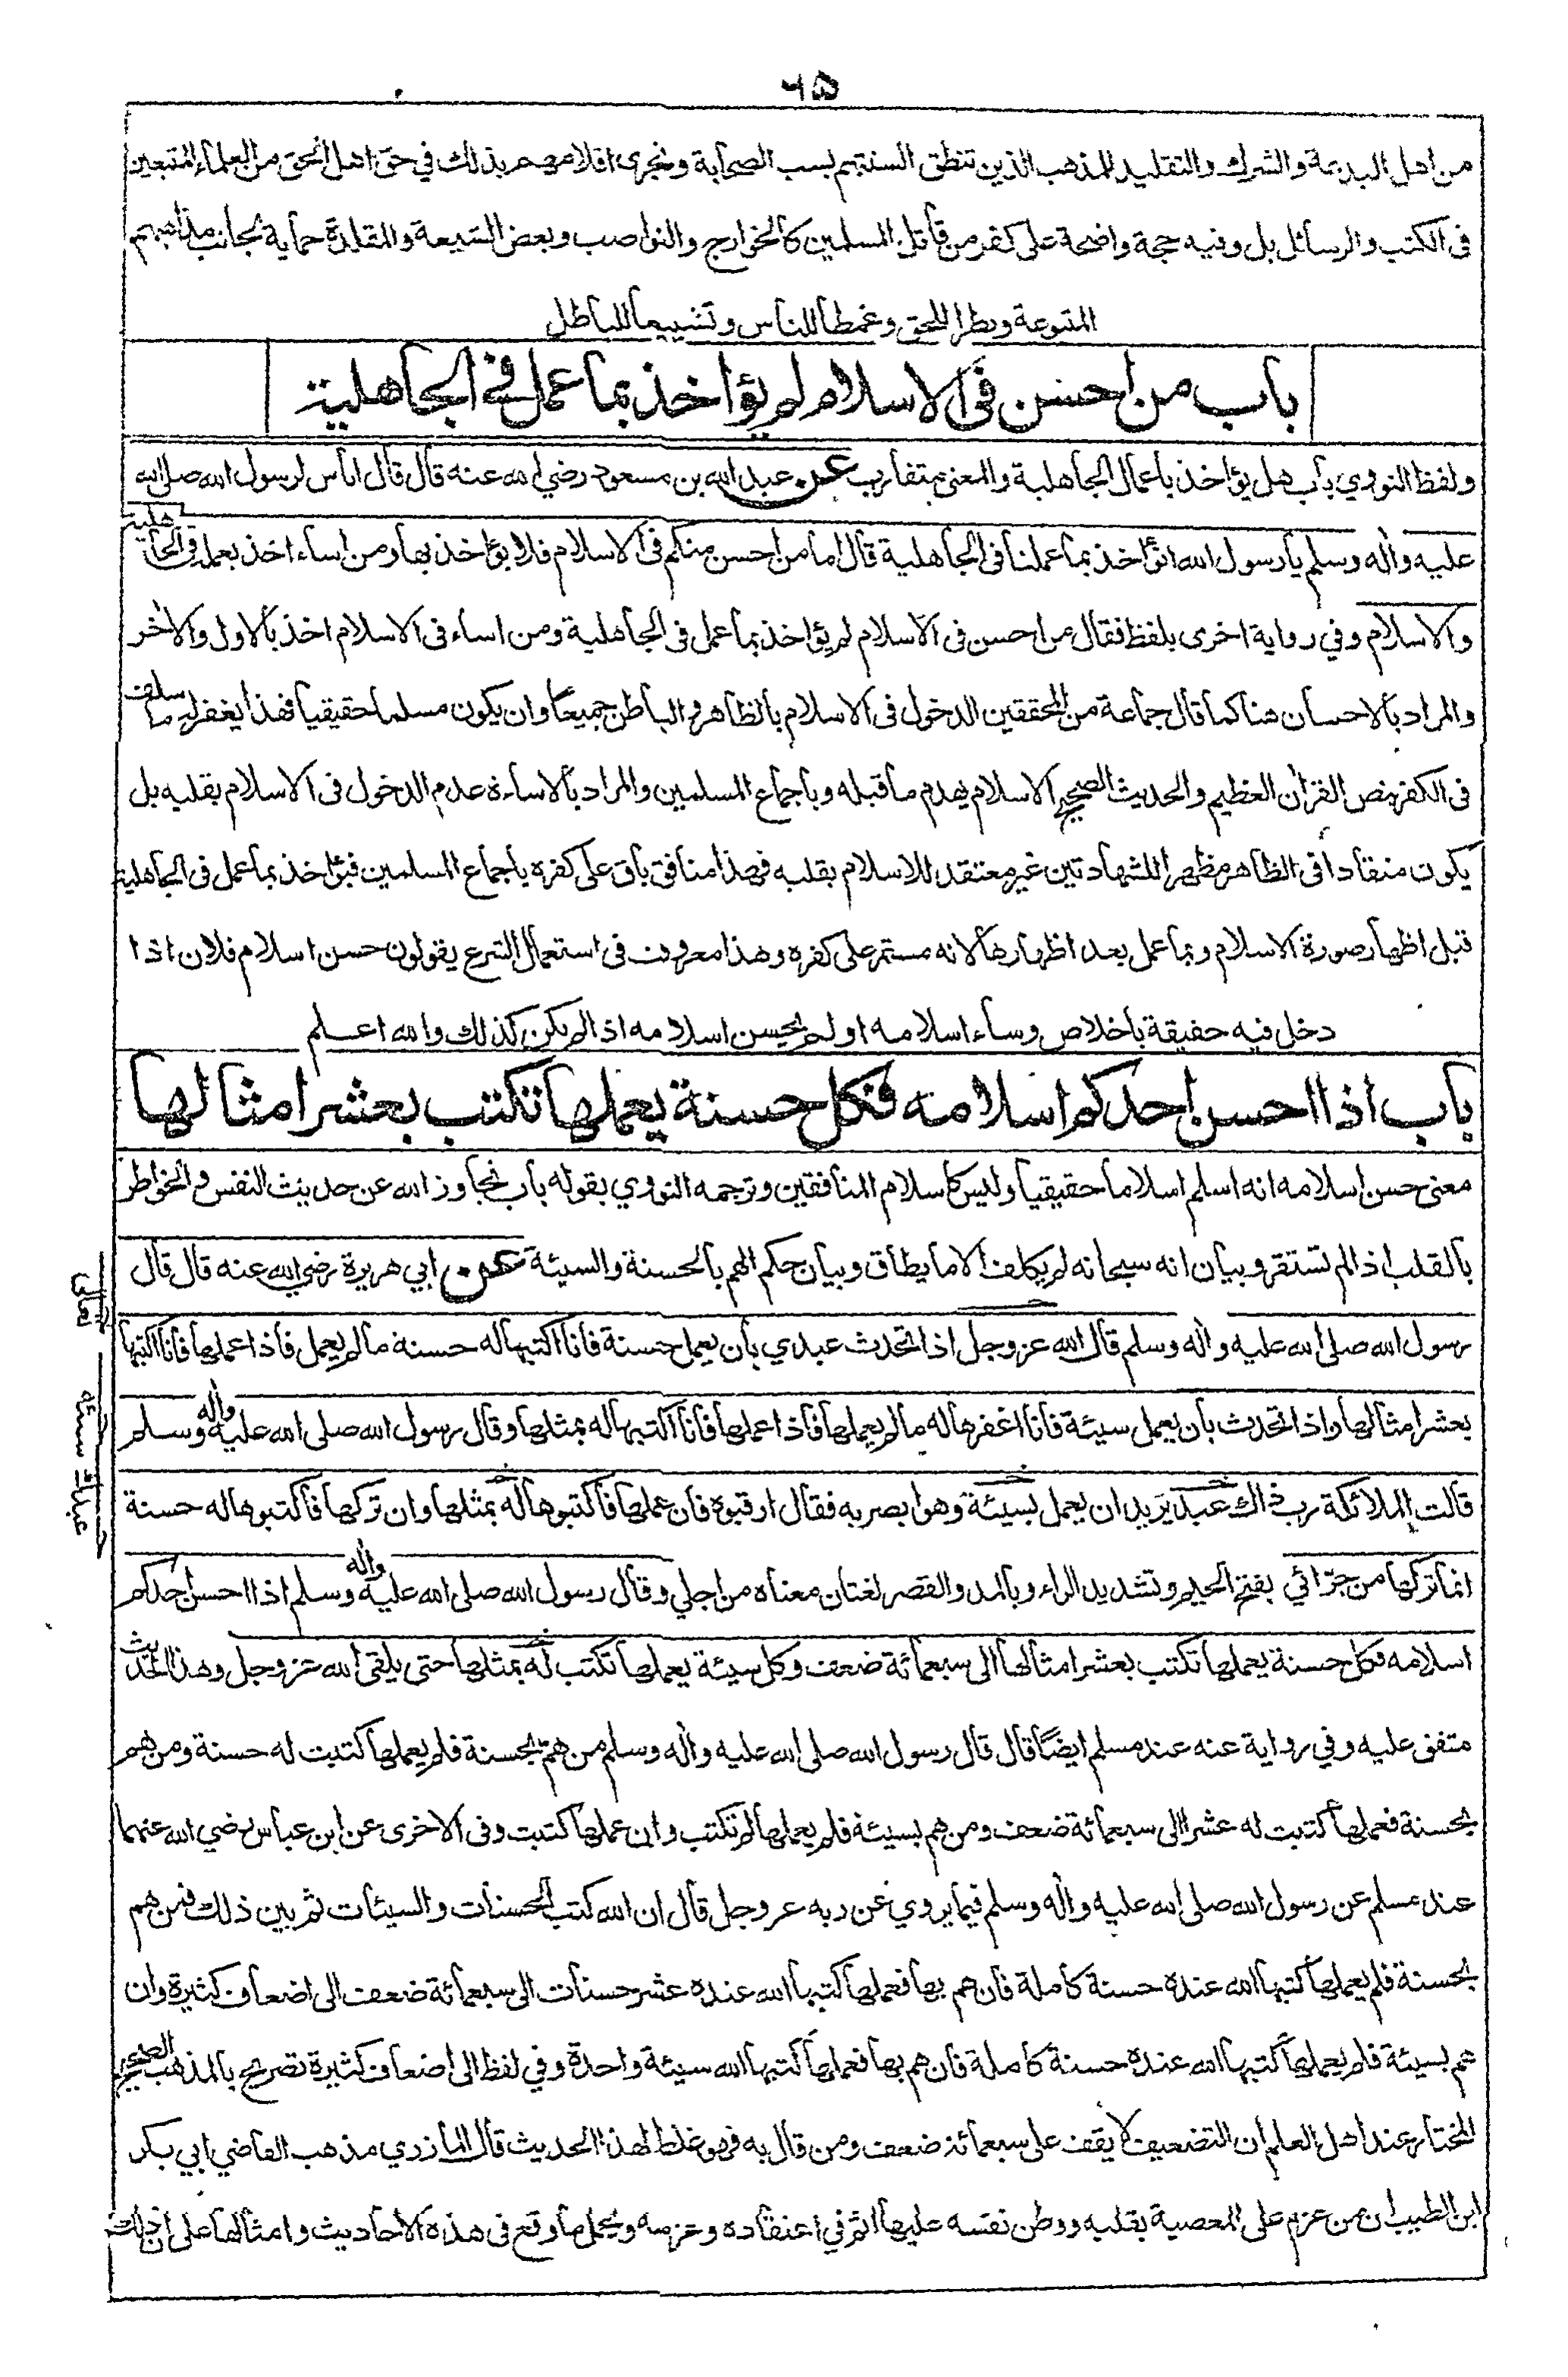 ٦٥
من اهل البدعة والشرك والتقليد للمذهب الذين تنطق السنتهم بسب الصحابة وتجرى اقلامهم بذلك في حق اهل الحق من العلماء المتبعين
فى الكتب والرسائل بل وفيه حجة واضحة على كفر من قاتل المسلمين كالخوارج والنواصب وبعض الشيعة والمقلدة حماية لجانب مذاهبهم
المتبوعة وبطرا للحق وغمطا للناس وتشييعا للباطل
باب من احسن فى الاسلام لم يؤاخذ بما عمل فى الجاهلية
ولفظ النووي باب هل يؤاخذ باعمال الجاهلية والمعنى متقارب عن عبد الله بن مسعود رضي الله عنه قال قال اناس لرسول الله صلى الله
عليه واله وسلم يا رسول الله انؤاخذ بما عملنا فى الجاهلية قال اما من احسن منكم فى الاسلام فلا يؤاخذ بها ومن اساء اخذ بعمله فى الجاهلية
والاسلام وفي رواية اخرى بلفظ فقال من احسن فى الاسلام لم يؤاخذ بما عمل فى الجاهلية ومن اساء فى الاسلام اخذ بالاول والاخر
والمراد بالاحسان هنا كما قال جماعة من المحققين الدخول فى الاسلام بالظاهر والباطن جميعا وان يكون مسلما حقيقيا فهذا يغفر له ما سلف
فى الكفر بنص القران العظيم والحديث الصحيح الاسلام يهدم ما قبله وباجماع المسلمين والمراد بالاساءة عدم الدخول فى الاسلام بقلبه بل
يكون منقادا فى الظاهر مظهرا للشهادتين غير معتقد للاسلام بقلبه فهذا منافق باق على كفره باجماع المسلمين فيؤاخذ بما عمل فى الجاهلية
قبل اظهار صورة الاسلام وبما عمل بعد اظهارها لانه مستمر على كفره وهذا معروف فى استعمال الشرع يقولون حسن اسلام فلان اذا
دخل فيه حقيقة باخلاص وساء اسلامه او لم يحسن اسلامه اذا لم يكن كذلك والله اعلم
باب اذا احسن احدكم اسلامه فكل حسنة يعملها تكتب بعشر امثالها
معنى حسن اسلامه انه اسلم اسلاما حقيقيا وليس كاسلام المنافقين وترجمه النووي بقوله باب تجاوز الله عن حديث النفس والخواطر
بالقلب اذا لم تستقر وبيان انه سبحانه لم يكلف الا ما يطاق وبيان حكم الهم بالحسنة والسيئة عن ابي هريرة رضي الله عنه قال قال
رسول الله صلى الله عليه واله وسلم قال الله عز وجل اذا تحدث عبدي بان يعمل حسنة فانا اكتبها له حسنة ما لم يعمل فاذا عملها فانا اكتبها
بعشر امثالها واذا تحدث بان يعمل سيئة فانا اغفرها له ما لم يعملها فاذا عملها فانا اكتبها له بمثلها وقال رسول الله صلى الله عليه واله وسلم
قالت الملائكة رب ذاك عبد يريد ان يعمل بسيئة وهو ابصر به فقال ارقبوه فان عملها فاكتبوها له بمثلها وان تركها فاكتبوها له حسنة
انما تركها من جرّائي بفتح الجيم وتشديد الراء وبالمد والقصر لغتان معناه من اجلي وقال رسول الله صلى الله عليه واله وسلم اذا احسن احدكم
اسلامه فكل حسنة يعملها تكتب بعشر امثالها الى سبعمائة ضعف وكل سيئة يعملها تكتب له بمثلها حتى يلقى الله عز وجل وهذا الحديث
متفق عليه وفي رواية عنه عند مسلم ايضًا قال قال رسول الله صلى الله عليه واله وسلم من همّ بحسنة فلم يعملها كتبت له حسنة ومن هم
بحسنة فعملها كتبت له عشرا الى سبعمائة ضعف ومن هم بسيئة فلم يعملها لم تكتب وان عملها كتبت وفى الاخرى عن ابن عباس رضي الله عنهما
عند مسلم عن رسول الله صلى الله عليه واله وسلم فيما يروي عن ربه عز وجل قال ان الله كتب الحسنات والسيئات ثم بين ذلك فمن هم
بحسنة فلم يعملها كتبها الله عنده حسنة كاملة فان هم بها فعملها كتبها الله عنده عشر حسنات الى سبعمائة ضعف الى اضعاف كثيرة وان
هم بسيئة فلم يعملها كتبها الله عنده حسنة كاملة فان هم بها فعملها كتبها الله سيئة واحدة وفي لفظ الى اضعاف كثيرة تصريح بالمذهب الصحيح
المختار عند اهل العلم ان التضعيف لا يقف على سبعمائة ضعف ومن قال به فهو غلط لهذا الحديث قال المازري مذهب القاضي ابي بكر
ابن الطيب ان من عزم على المعصية بقلبه ووطن نفسه عليها اثم في اعتقاده وعزمه ويحمل ما وقع فى هذه الاحاديث وامثالها على ان ذلك
تعالى
عبدك سيئة